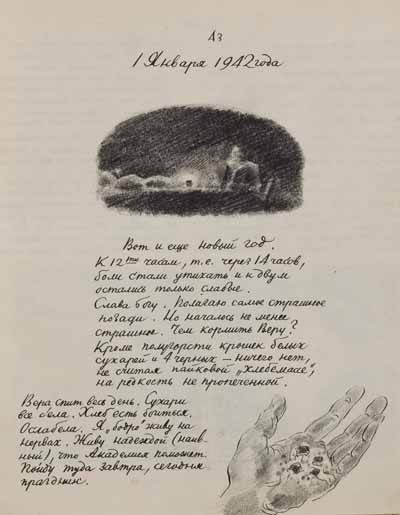 43
1 Января 1942 года
Вот и еще новый год.
К 12ти часам, т.е. через 14 часов,
боли стали утихать и к двум
остались только слабые.
Слава богу. Полагаю самое страшное
позади. Но началось не менее
страшное. Чем кормить Веру?
Кроме полугорсти крошек белых
сухарей и 4 черных – ничего нет,
не считая пайковой „хлебомаси",
на редкость не пропеченной.
Вера спит весь день. Сухари
все съела. Хлеб есть боится.
Ослабела. Я „бодро" живу на
нервах. Живу надеждой (наив-
ный), что Академия поможет.
Пойду туда завтра, сегодня
праздник.